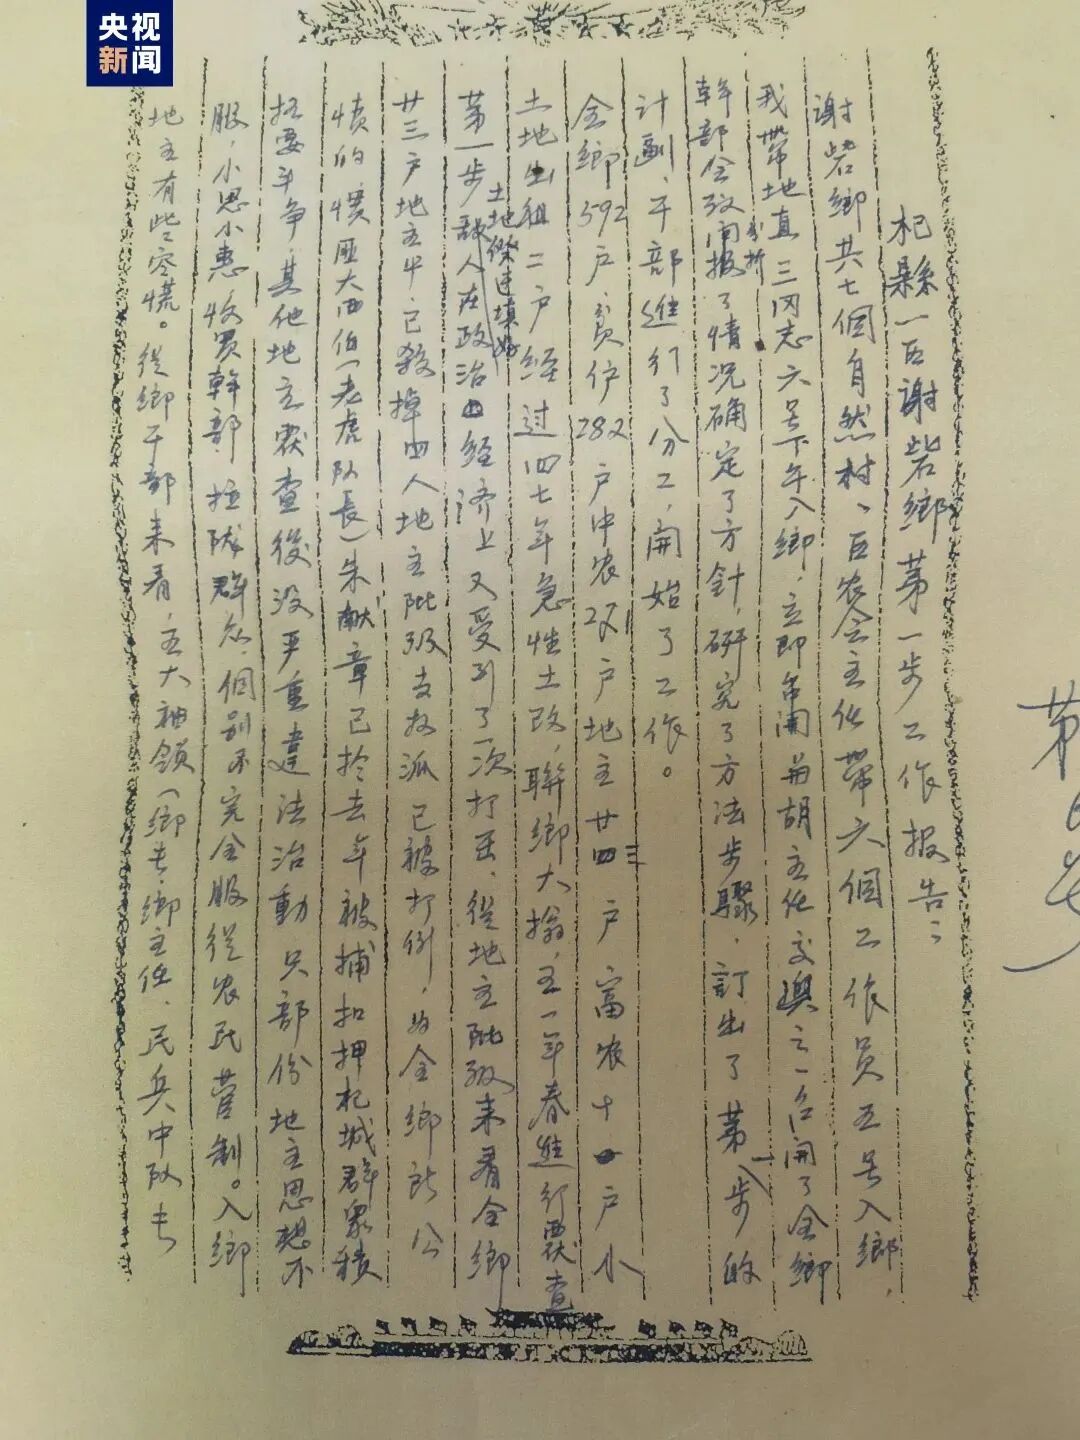 央视
新闻
杞縣一区谢砦鄉第一步工作报告：
谢砦鄉共七個自然村、区农会主任帶六個工作員五号入鄉，
我帶地直三同志六号下午入鄉，立即召開前胡主任交换之一召開了全鄉
幹部会
分析
报了情况确定了方針，研究了方法步驟，訂出了第一步的
计劃，干部進行了分工，開始了工作。
全鄉592户，貧伫282户中农271户地主廿三户富农十户小
土地出租二户經过四七年急性土改，聯鄉大搞，五一年春進行覆查
土地
第一步敌人在政治由經济上又受到了一次打击、從地主阶級来看全鄉
廿三户地主中已殺掉四人地主阶級支柱派已被打倒，为全鄉所公
愤的慣匪大西伯（老虎队長）朱献章已於去年被捕扣押杞城群眾積
極要斗争，其他地主覆查後没严重違法活動只部份地主思想不
服，小恩小惠，收買幹部拉拢群众，個别不完全服從农民管制。入鄉
地主有些恐慌。從鄉干部来看，五大袖領（鄉長、鄉主任、民兵中队長